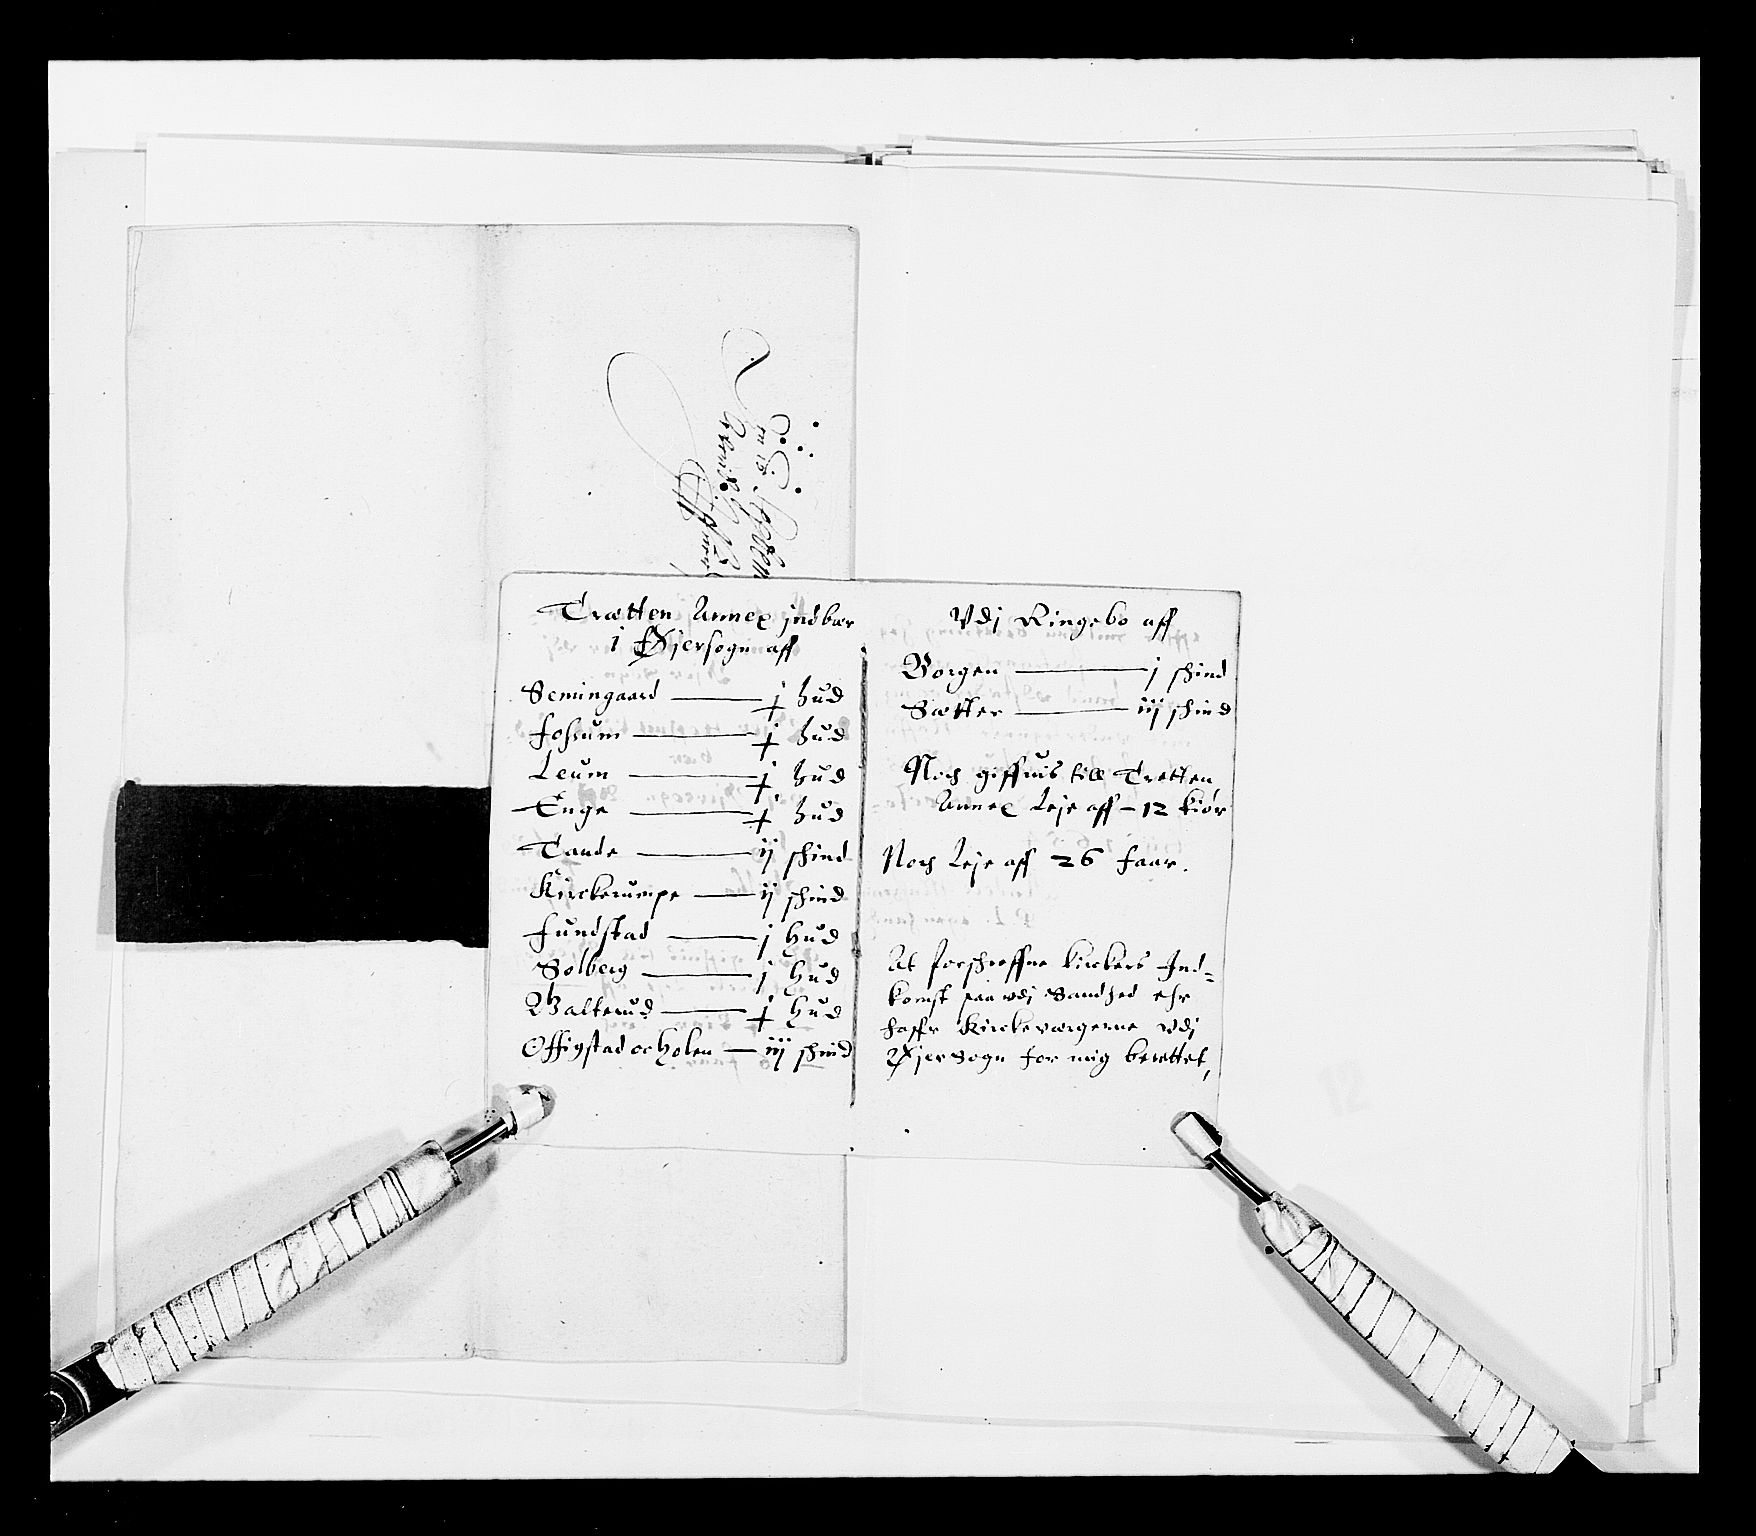 Trætten Annex jndbær
i Øjersogn aff
Semingaard — j hud
Fossum — j hud
Leum — j hud
Enge — j hud
Tande — ij skind
Kirckerumpe — ij skind
Fundstad — j hud
Solberg — j hud
Walterud — j hud
Offigstad oc Holen — iij skind
Vdj Ringebo aff
Borgen — j skind
Sætter — iij skind
Noch giffuis till Tretten
Annex Leje aff – 12 kiør
Noch Leje aff 26 faar.
At forschreffne kirckers Ind-
komst saa vdj Sandhed ehr
haffr Kirckeværgerne vdj
Øjersogn for mig berettet,